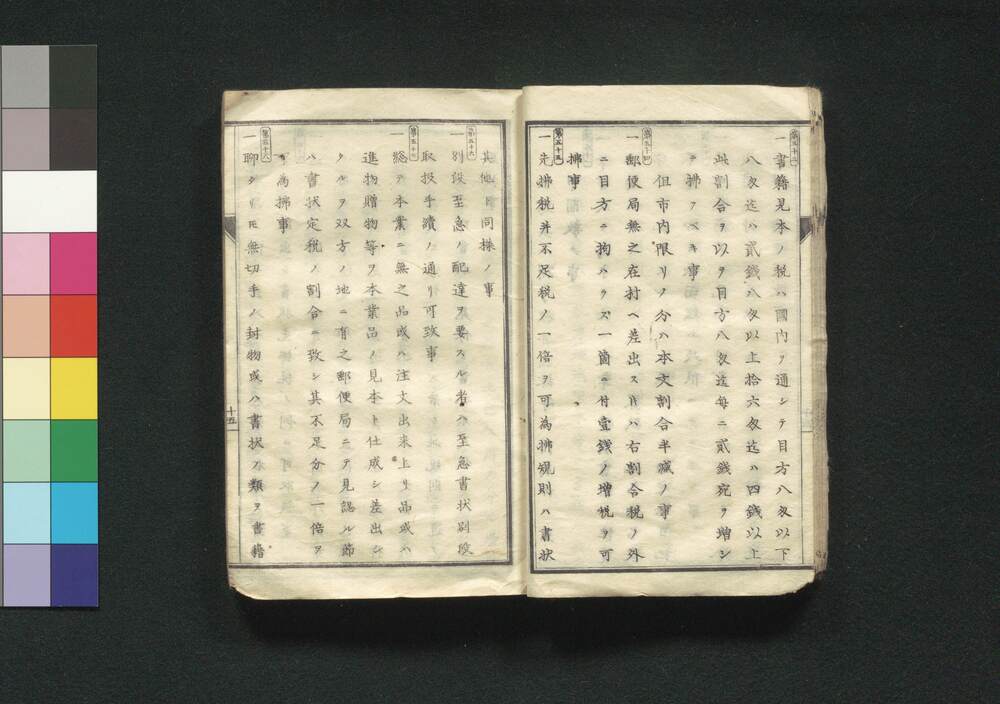 第五十三
一書籍見本ノ税ハ國内ヲ通シテ目方八匁以下
八匁迄ハ貳錢八匁以上拾六匁迄ハ四錢以上
此割合ヲ以ヲ目方八匁迄毎ニ貳錢宛ヲ増シ
テ拂フベキ事
但市内限リノ分ハ本文割合半減ノ事
第五十四
一郵便局無之在村ヘ差出ス時ハ右割合税ノ外
ニ目方ニ拘ハラズ一箇ニ付壹錢ノ増税ヲ可
拂事
第五十五
一先拂税并不足税ノ一倍ヲ可為拂規則ハ書状
其他ト同様ノ事
第五十六
一別段至急ノ配達ヲ要スル者ハ至急書状別段
取扱手續ノ通リ可致事
第五十七
一総テ本業ニ無之品或ハ注文出来上リ品或ハ
進物贈物等ヲ本業品ノ見本ト仕成シ差出シ
タルヲ双方ノ地ニ有之郵便局ニテ見認ル節
ハ書状定税ノ割合ニ致シ其不足分ノ一倍ヲ
可為拂事
第五十八
一聊タリ𪜈無切手ノ封物或ハ書状ノ類ヲ書籍
十五